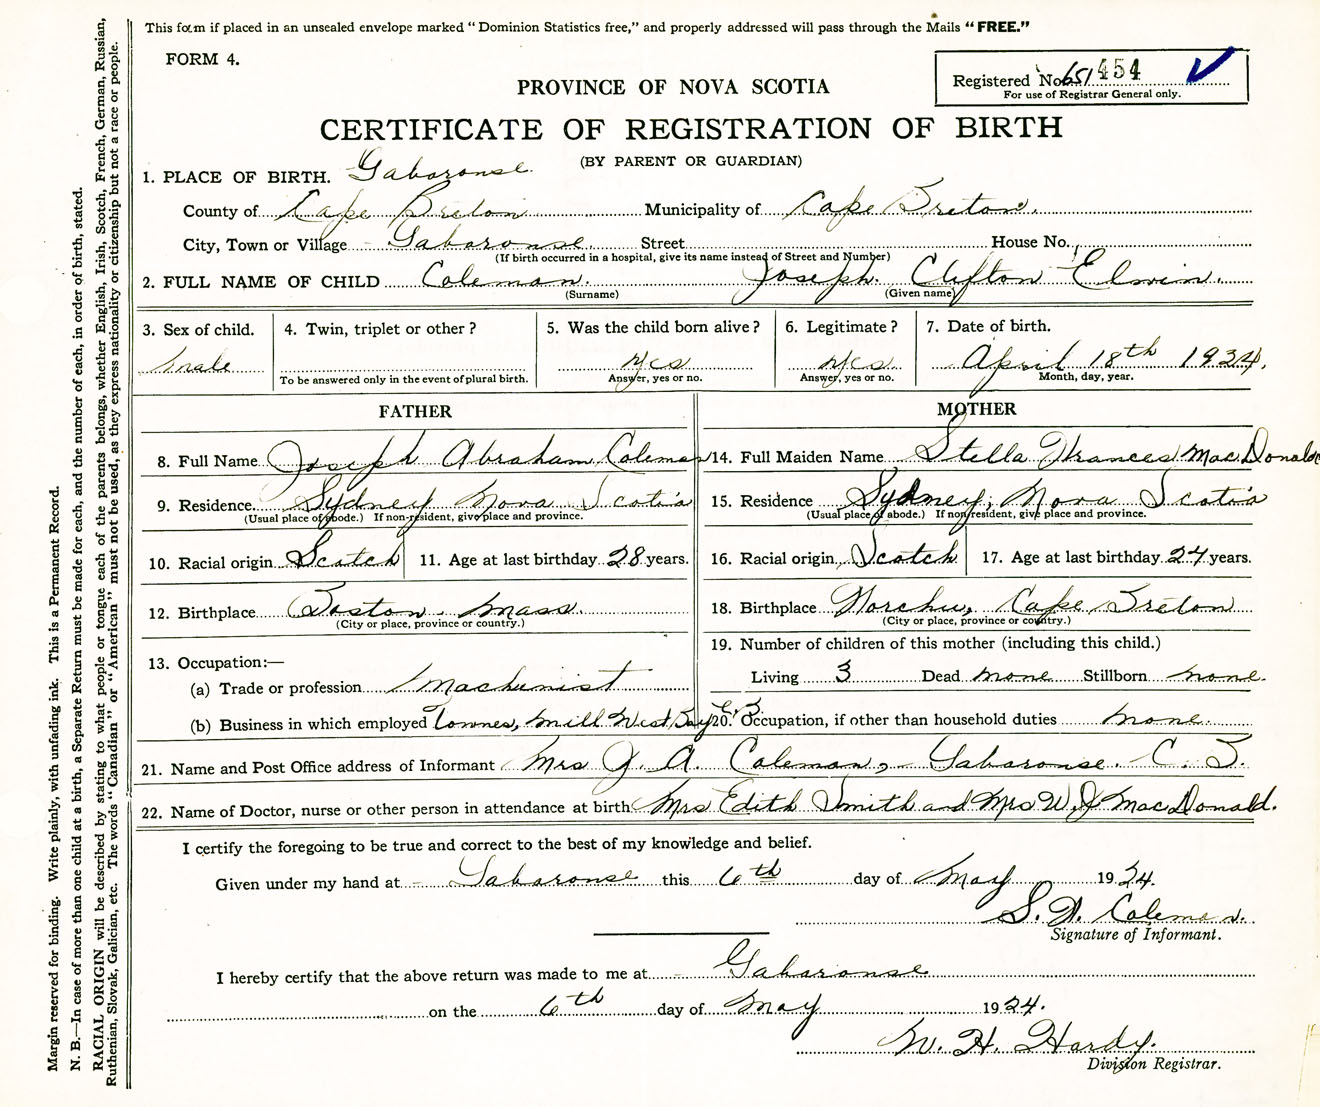 This form if placed in an unsealed envelope marked "Dominion Statistics free," and properly addressed will pass through the Mails "FREE."
FORM 4.
Registered No. 651 454
For use of Registrar General only.
PROVINCE OF NOVA SCOTIA
CERTIFICATE OF REGISTRATION OF BIRTH
(BY PARENT OR GUARDIAN)
1. PLACE OF BIRTH. Gabarouse
County of Cape Breton Municipality of Cape Breton.
City, Town or Village Gabarouse. Street House No.
(If birth occurred in a hospital, give its name instead of Street and Number)
2. FULL NAME OF CHILD Coleman. Joseph Clifton Elwin.
(Surname) (Given name)
3. Sex of child. 4. Twin, triplet or other? 5. Was the child born alive? 6. Legitimate? 7. Date of birth.
male yes yes April 18th 1934.
To be answered only in the event of plural birth. Answer, yes or no. Answer, yes or no. Month, day, year.
FATHER
8. Full Name Joseph Abraham Coleman
9. Residence Sydney Nova Scotia
(Usual place of abode.) If non-resident, give place and province.
10. Racial origin Scotch 11. Age at last birthday 28 years.
12. Birthplace Boston Mass.
(City or place, province or country.)
13. Occupation:—
(a) Trade or profession machinist
(b) Business in which employed Townes, Mill West Bay C.B.
MOTHER
14. Full Maiden Name Stella Frances MacDonald
15. Residence Sydney, Nova Scotia
(Usual place of abode.) If non-resident, give place and province.
16. Racial origin Scotch 17. Age at last birthday 24 years.
18. Birthplace Cape Breton
(City or place, province or country.)
19. Number of children of this mother (including this child.)
Living 3 Dead none Stillborn none.
20. Occupation, if other than household duties none.
21. Name and Post Office address of Informant Mrs J. A. Coleman, Gabarouse. C. B.
22. Name of Doctor, nurse or other person in attendance at birth Mrs Edith Smith and Mrs W. J MacDonald.
I certify the foregoing to be true and correct to the best of my knowledge and belief.
Given under my hand at Gabarouse this 6th day of May 1934.
S. F. Coleman.
Signature of Informant.
I hereby certify that the above return was made to me at Gabarouse
on the 6th day of May 1934.
W. H. Hardy.
Division Registrar.
Margin reserved for binding. Write plainly, with unfading ink. This is a Permanent Record.
N. B.—In case of more than one child at a birth, a Separate Return must be made for each, and the number of each, in order of birth, stated.
RACIAL ORIGIN will be described by stating to what people or tongue each of the parents belongs, whether English, Irish, Scotch, French, German, Russian,
Ruthenian, Slovak, Galician, etc. The words "Canadian" or "American" must not be used, as they express nationality or citizenship but not a race or people.